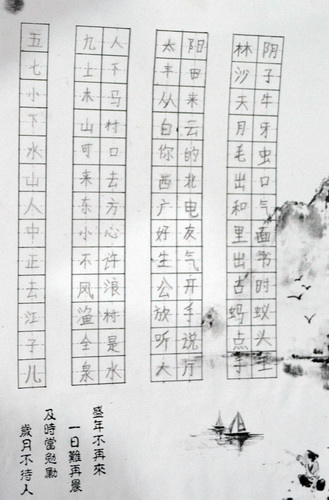 阴子牛牙虫口气面书时蚁头
林沙天月毛出和里出古蚂点手
阳田米云的北电友气开手说厅
太丰从白你西广好生公放听大
人下马村口去方心许浪村是水
九土木山可来东小不风全泉
五七小下水山人中正去江子儿
盛年不再來
一日難再晨
及時當勉勵
歲月不待人